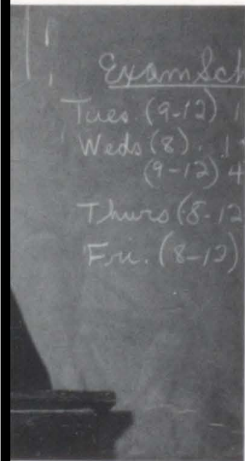 Exam Sch
Tues. (9-12) 1
Weds (8). 1
(9-12) 4
Thurs (8-12
Fri. (8-12)